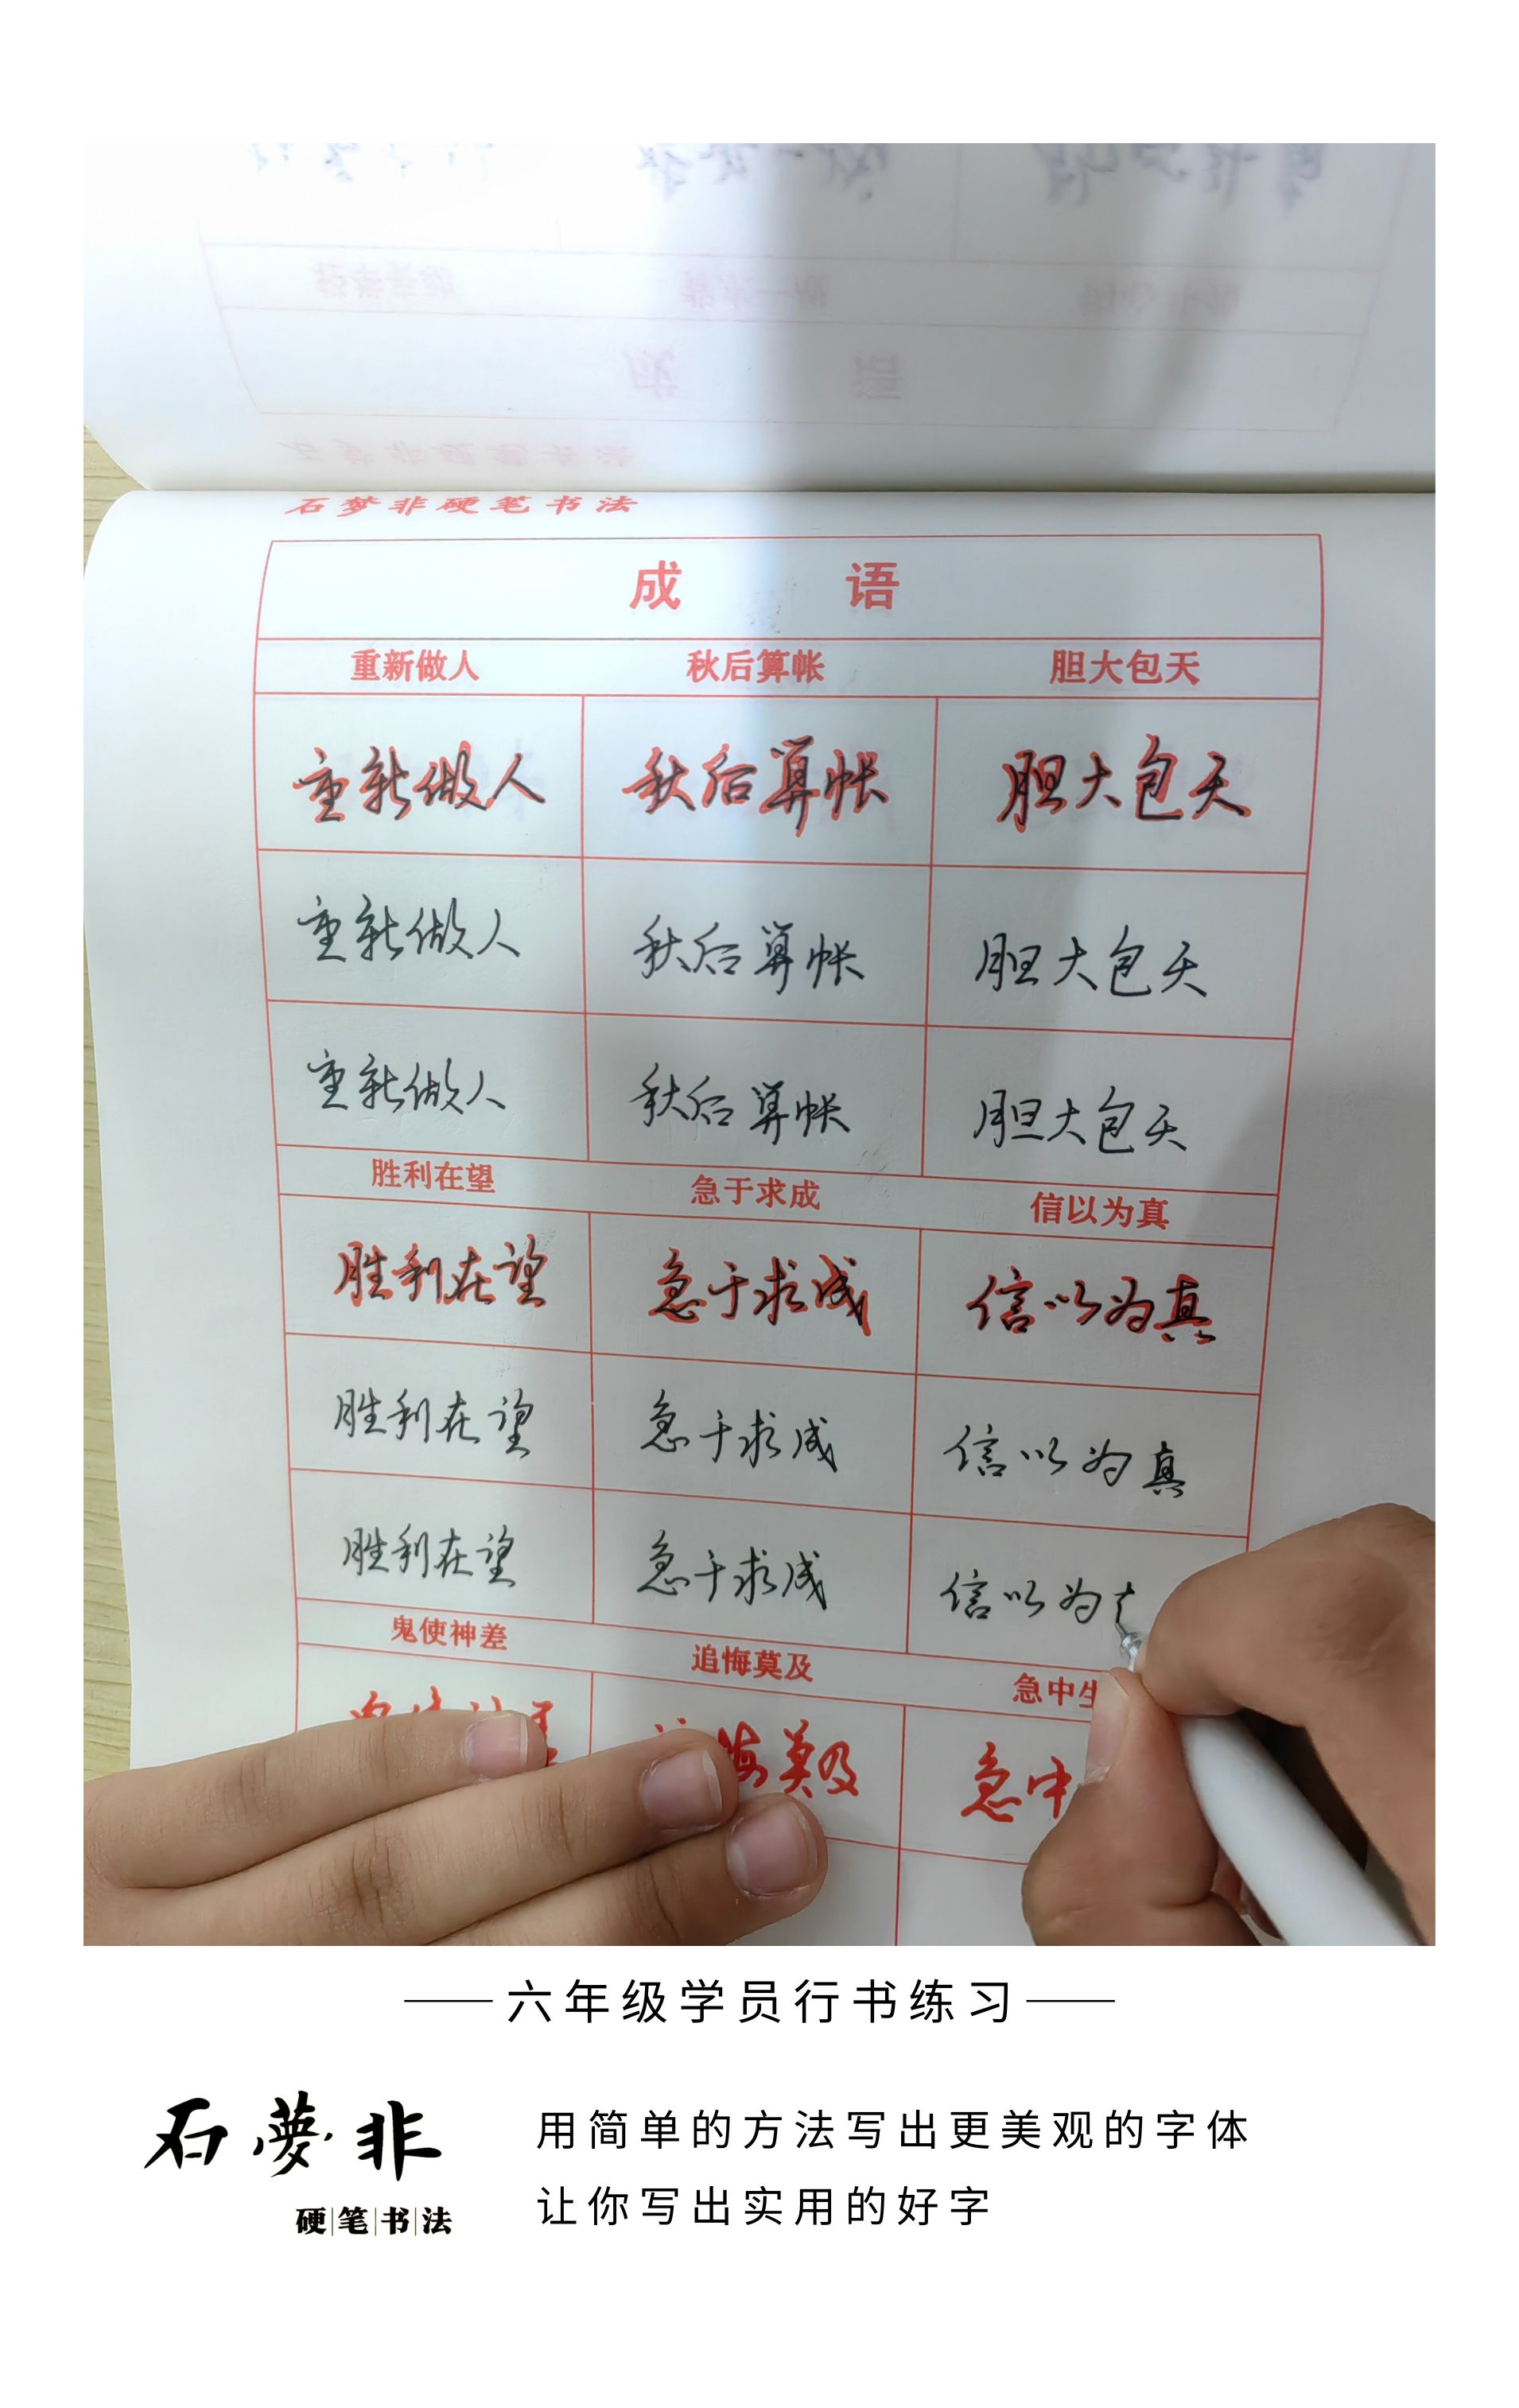 石梦非硬笔书法
成 语
重新做人 秋后算帐 胆大包天
重新做人 秋后算帐 胆大包天
重新做人 秋后算帐 胆大包天
重新做人 秋后算帐 胆大包天
胜利在望 急于求成 信以为真
胜利在望 急于求成 信以为真
胜利在望 急于求成 信以为真
胜利在望 急于求成 信以为
鬼使神差 追悔莫及 急中生
悔莫及 急中
六年级学员行书练习
石夢非
硬笔书法
用简单的方法写出更美观的字体
让你写出实用的好字